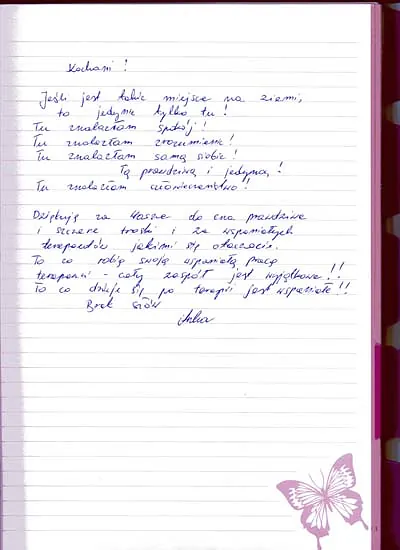 Kochani!
Jeśli jest takie miejsce na ziemi,
to jedynie tylko tu!
Tu znalazłam spokój!
Tu znalazłam zrozumienie!
Tu znalazłam samą siebie!
Tą prawdziwą i jedyną!
Tu znalazłam człowieczeństwo!
Dziękuję za Wasze do cna prawdziwe
i szczere troski i za wspaniałych
terapeutów jakimi się otaczacie.
To co robią swoją wspaniałą pracą
terapeuci - cały zespół jest wyjątkowe!!
To co dzieje się po terapii jest wspaniałe!!
Brak słów